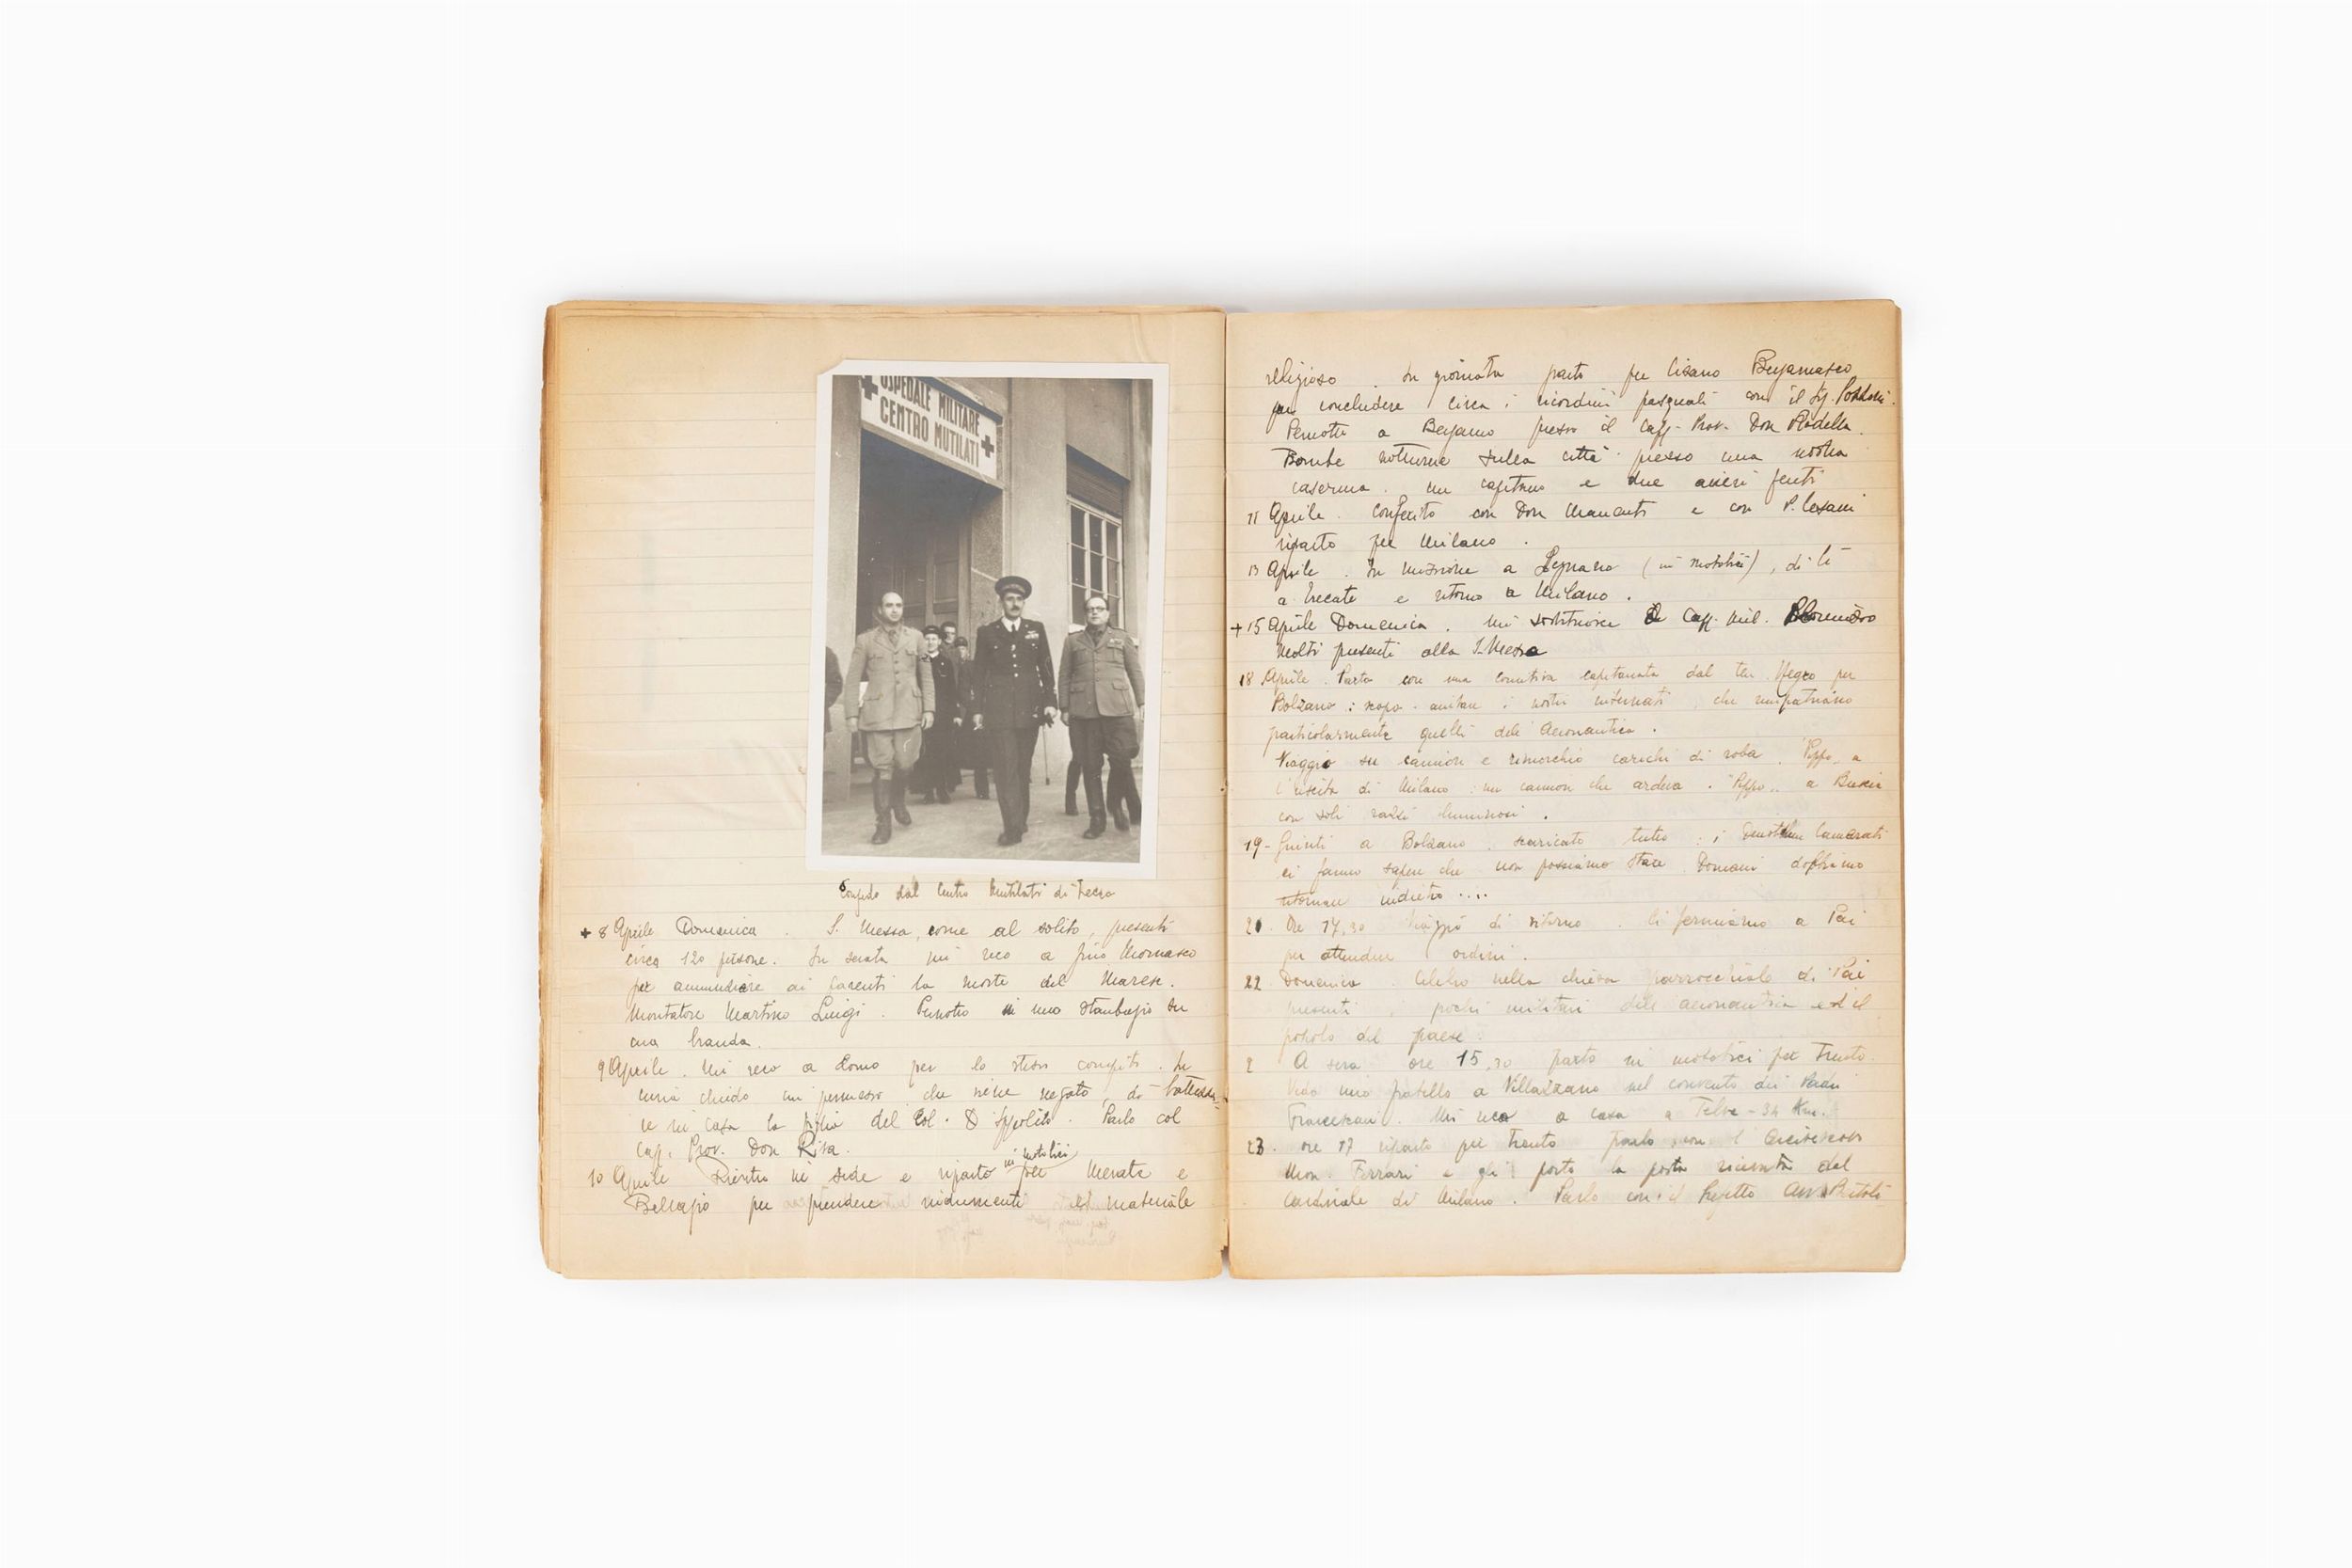 OSPEDALE MILITARE
CENTRO MUTILATI
Congedo dal Centro Mutilati di
+ 8 Aprile Domenica. S. Messa, come al solito, presenti
circa 120 persone. In serata mi reco a Fino Mornasco
per annunciare ai parenti la morte del Maresc.
Montatore Martino Luigi. Pernotto in uno stambugio su
una branda.
9 Aprile. Mi reco a Como per lo stesso compito. In
curia chiedo un permesso che viene negato, di battezza-
re in casa la figlia del Col. D'Ippolito. Parlo col
cap. Prov. Don Riva.
10 Aprile Rientro in sede e riparto in motobici per Merate e
Bellagio per prendere indumenti ed materiale
religioso. In giornata parto per Cisano Bergamasco
per concludere circa i ricordini pasquali con il Sig.
Pernotto a Bergamo presso il Capp. Prov. Don Rodella.
Bombe notturne sulla città presso una nostra
caserma. Un capitano e due avieri feriti
11 Aprile. Conferito con Don e con P.
riparto per Milano.
13 Aprile. In missione a Legnano (in motobici), di lì
a Trecate e ritorno a Milano.
+ 15 Aprile Domenica. Mi sostituisce il Capp. Mil.
Molti presenti alla S. Messa
18 Aprile. Parto con una comitiva capitanata dal ten. Negro per
Bolzano: scopo - aiutare i nostri internati, che rimpatriano
particolarmente quelli dell'Aeronautica.
Viaggio su camion e rimorchio carichi di roba. "Pippo" a
l'uscita di Milano: un camion che ardeva. "Pippo" a Brescia
con soli razzi luminosi.
19 - Giunti a Bolzano: scaricato tutto: i camerati
ci fanno sapere che non possiamo stare. Domani dobbiamo
ritornare indietro....
Ore 14,30 viaggio di ritorno. Ci fermiamo a Pai
per attendere ordini.
22 Domenica. Celebro nella chiesa parrocchiale di Pai
presenti pochi militari dell'aeronautica ed il
popolo del paese.
A sera ore 15,30 parto in motobici per Trento.
Vedo mio fratello a Villazzano nel convento dei Padri
Francescani. Mi reco a casa a Telve - 34 Km.
23. ore 17 riparto per Trento parlo con l'Arcivescovo
Mon. Ferrari e gli porto la posta ricevuta dal
Cardinale di Milano. Parlo con il Prefetto